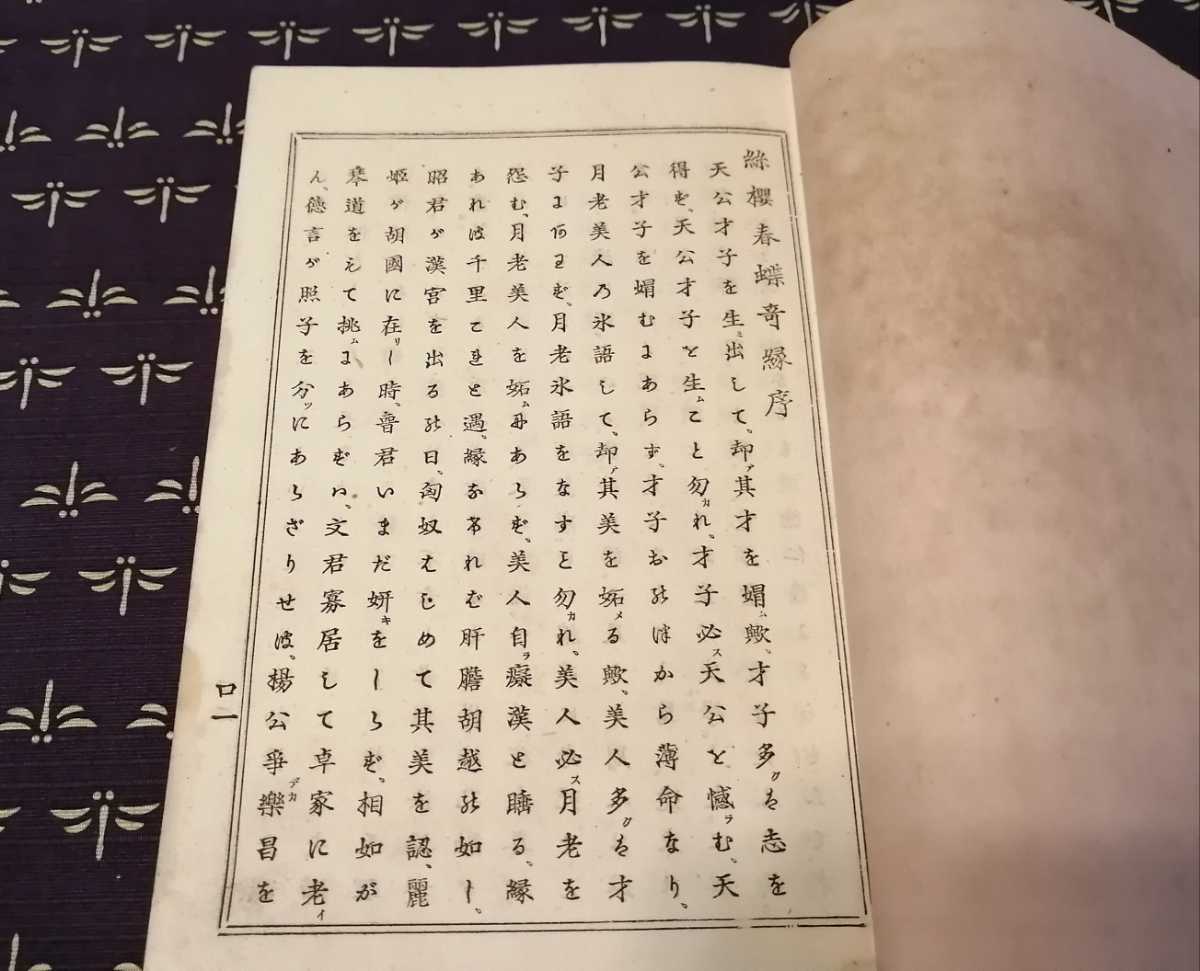 絲櫻春蝶奇縁序
天公才子を生ミ出して、却ァ其才を媢ム歟、才子多クは志を
得ず、天公才子を生ムこと勿カれ、才子必ス天公を憾ヲむ、天
公才子を媢むにあらず、才子おのづから薄命なり、
月老美人の氷語して、却ァ其美を妬メる歟、美人多クは才
子にあわず、月老氷語をなすこと勿カれ、美人必ス月老を
怨む、月老美人を妬ムにあらず、美人自ヲ癡漢と る、縁
あれば千里これと遇、縁なければ肝膽胡越の如し、
昭君が漢宮を出るの日、匈奴はじめて其美を認、麗
姫が胡國に在リし時、晉君いまだ妍キをしらず、相如が
琴道をもて挑ムにあらずは、文君寡居して卓家に老イ
ん、徳言が照子を分ツにあらざりせば、楊公爭デカ樂昌を
口一